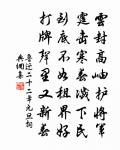 雲封高岫護將軍
霆擊寒村滅下民
到底不如租界好
打牌聲里又新春
魯迅二十二年元旦詞